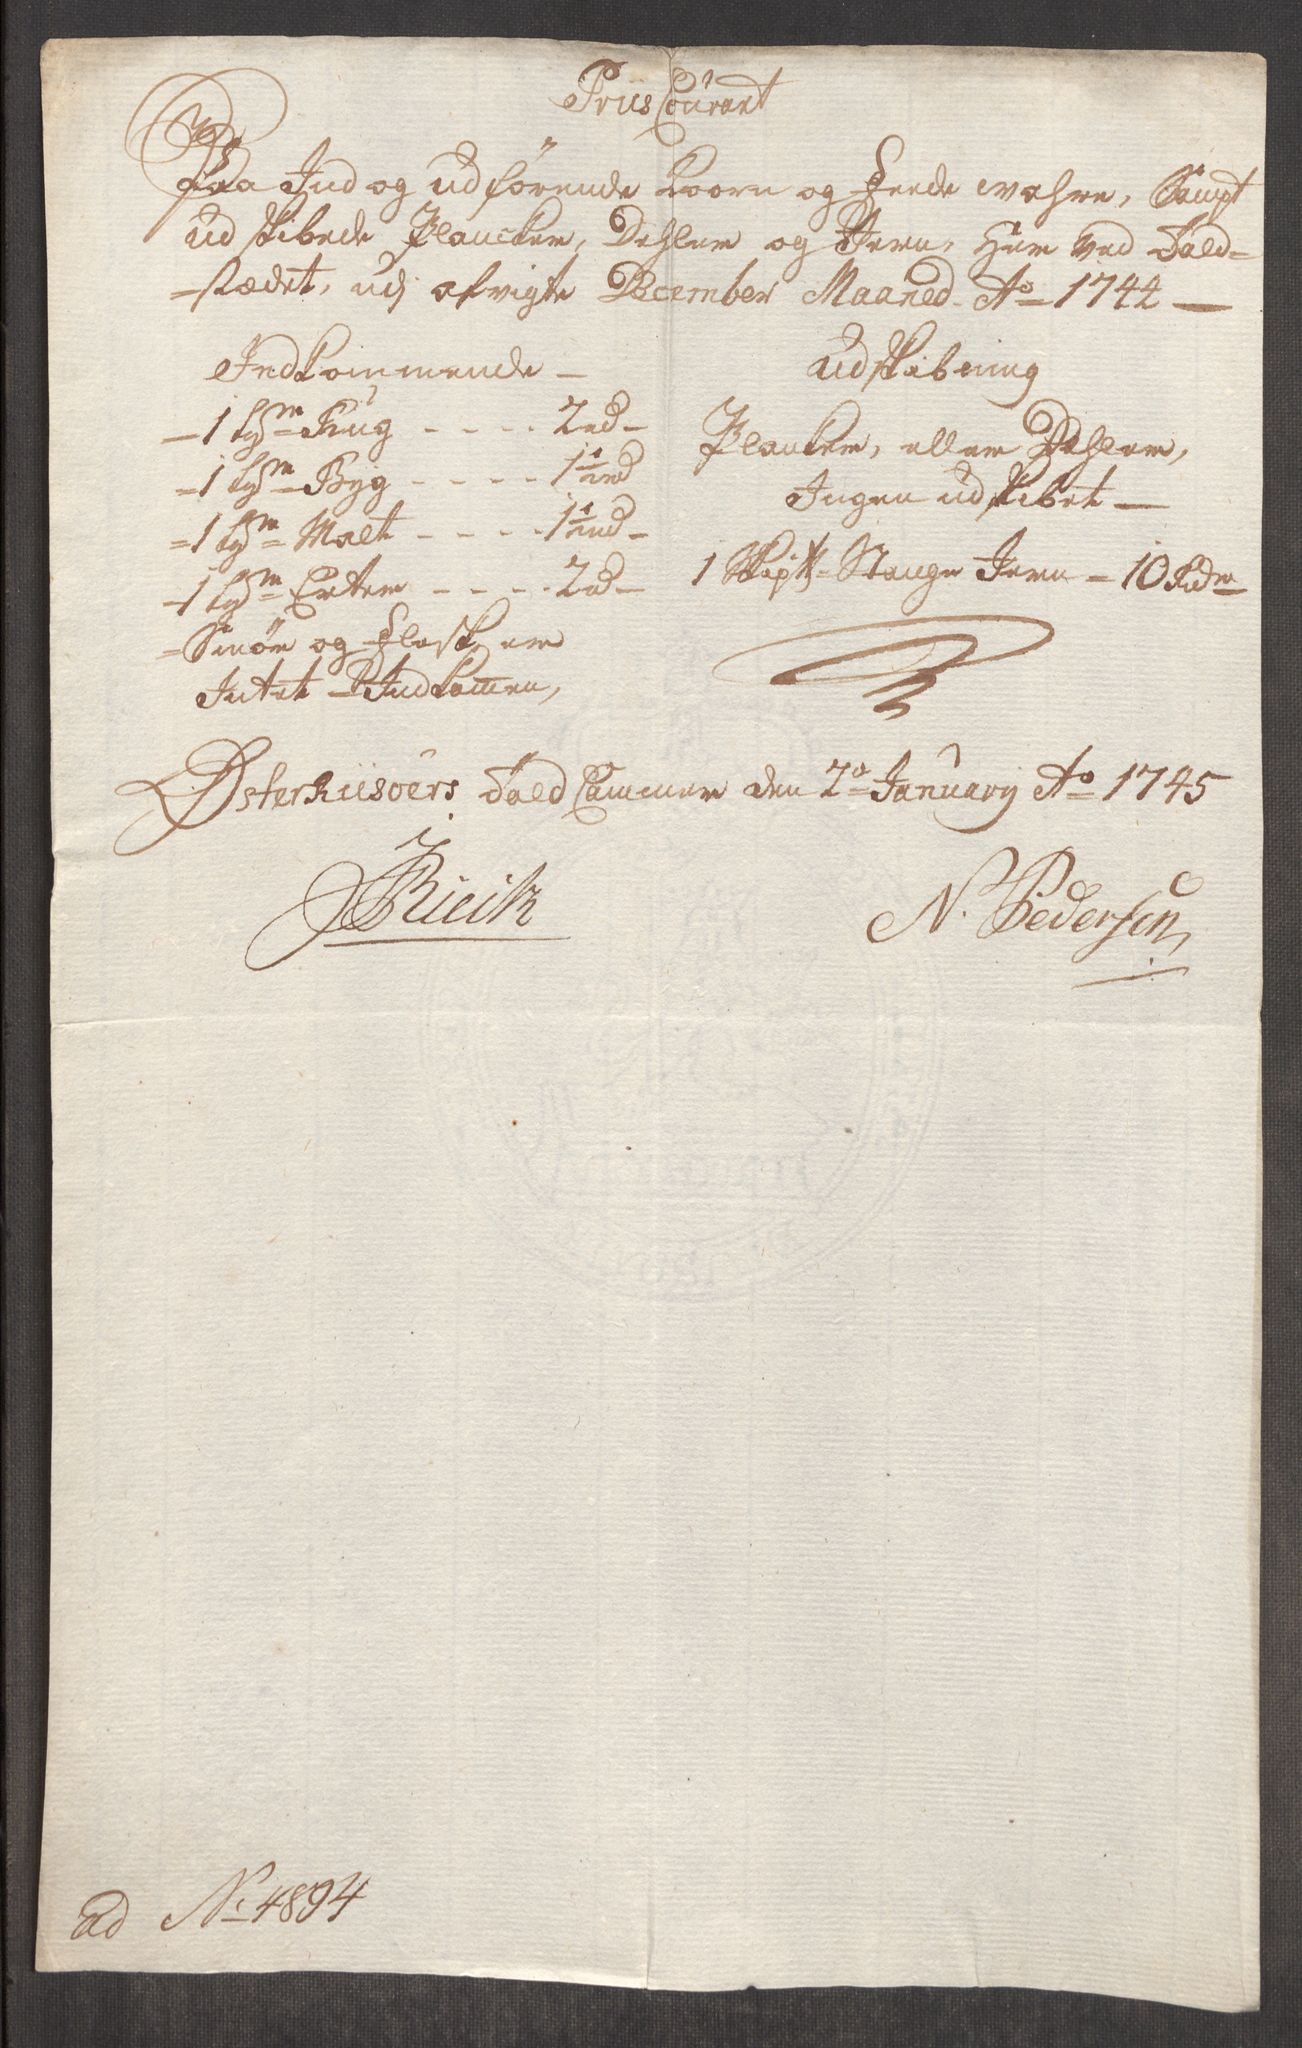 Priis Courant
Paa Ind og udførende Koorn og feede wahre, Sampt
udskibede Plancker, Dehler og Jern, Her ved Told-
=stædet, udj afvigte December Maaned Ao 1744
Indkommende
1 tøn Rug - - - - 2rd
1 tøn Byg - - - - 1½rd
1 tøn Malt - - - - 1½rd
1 tøn Erter - - - - 2rd
Smør og Flesk er
Intet Indkommen,
Udskibning
Plancker, eller Dehler,
Ingen udskibet
1 Skip℔ Stange Jern = 10 Rdr
Østerriisøers Told Cammer den 2o January Ao 1745
N. Pedersen
ad No 4894